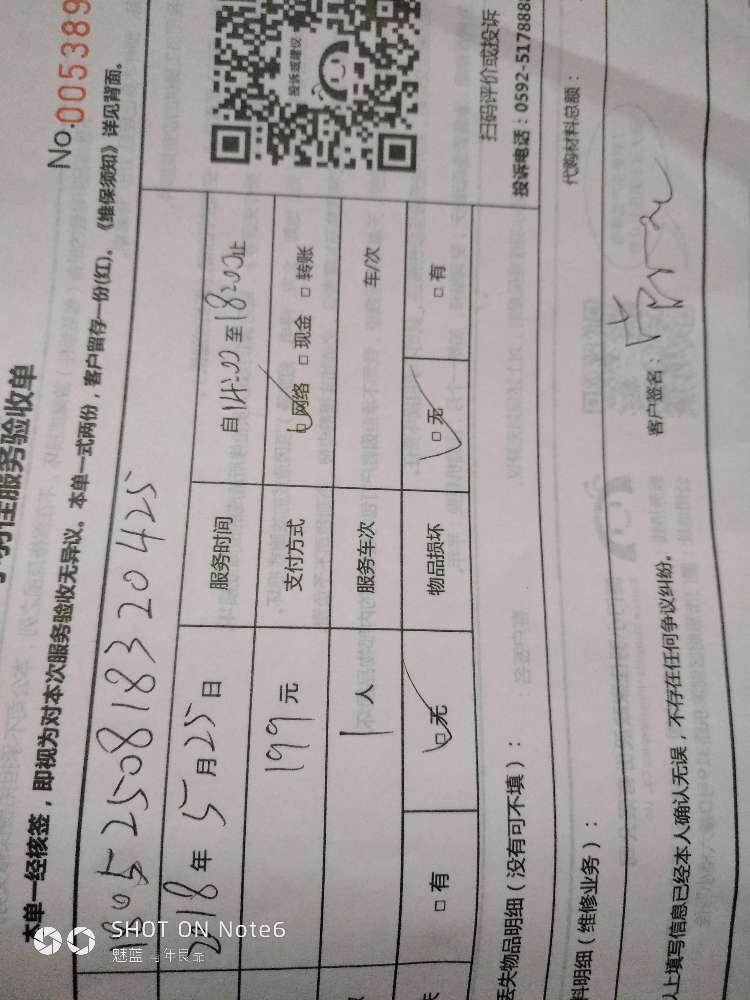 服务验收单
No.005389
本单一经核签，即视为对本次服务验收无异议。本单一式两份，客户留存一份(红)。《维保须知》详见背面。
1805250818320425
2018年5月25日 服务时间 自14:00至18:00止
199元 支付方式 □网络 □现金 □转账
1人 服务车次 车/次
□有 □无 物品损坏 □无 □有
投诉或建议
扫码评价或投诉
投诉电话：0592-5178888
丢失物品明细（没有可不填）：
料明细（维修业务）：
代购材料总额：
以上填写信息已经本人确认无误，不存在任何争议纠纷。
客户签名：
SHOT ON Note6
魅蓝